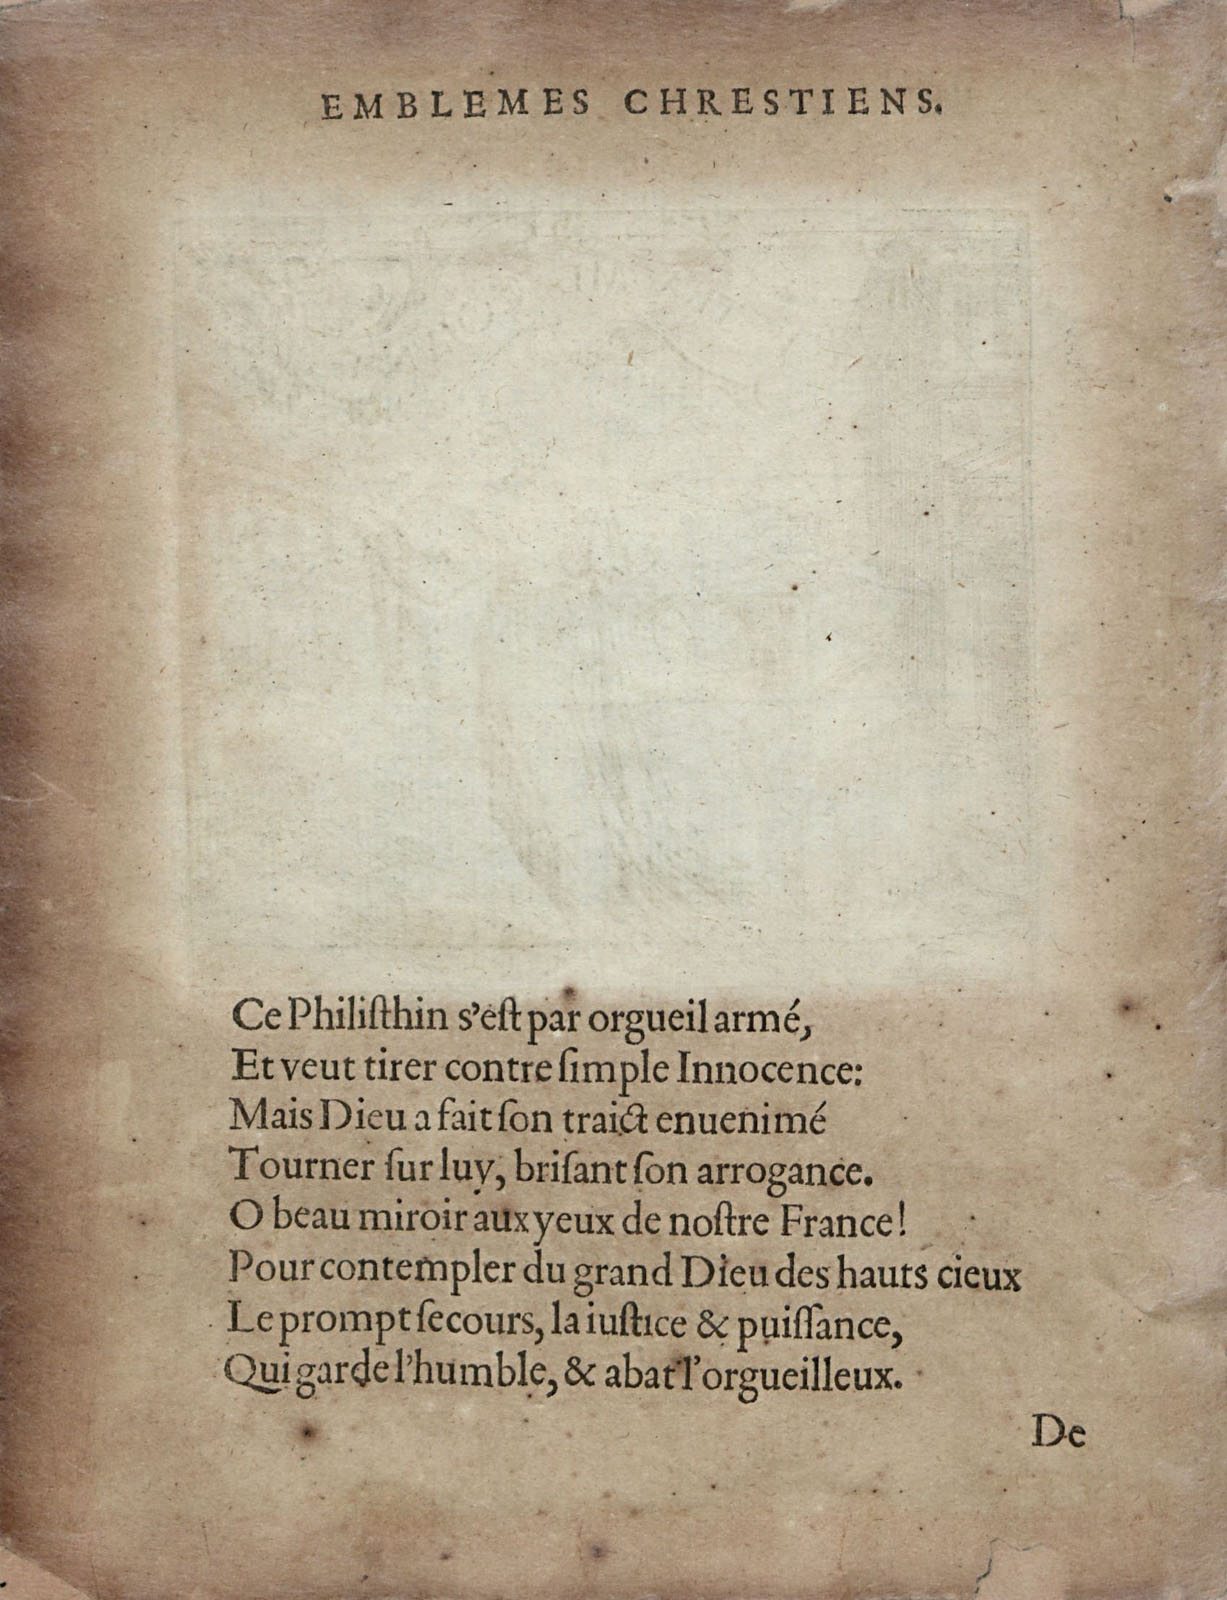 EMBLEMES CHRESTIENS.
Ce Philiſthin s'eſt par orgueil armé,
Et veut tirer contre ſimple Innocence:
Mais Dieu a fait ſon traict enuenimé
Tourner ſur luy, briſant ſon arrogance.
O beau miroir aux yeux de noſtre France!
Pour contempler du grand Dieu des hauts cieux
Le prompt ſecours, la iuſtice & puiſſance,
Qui garde l'humble, & abat l'orgueilleux.
De